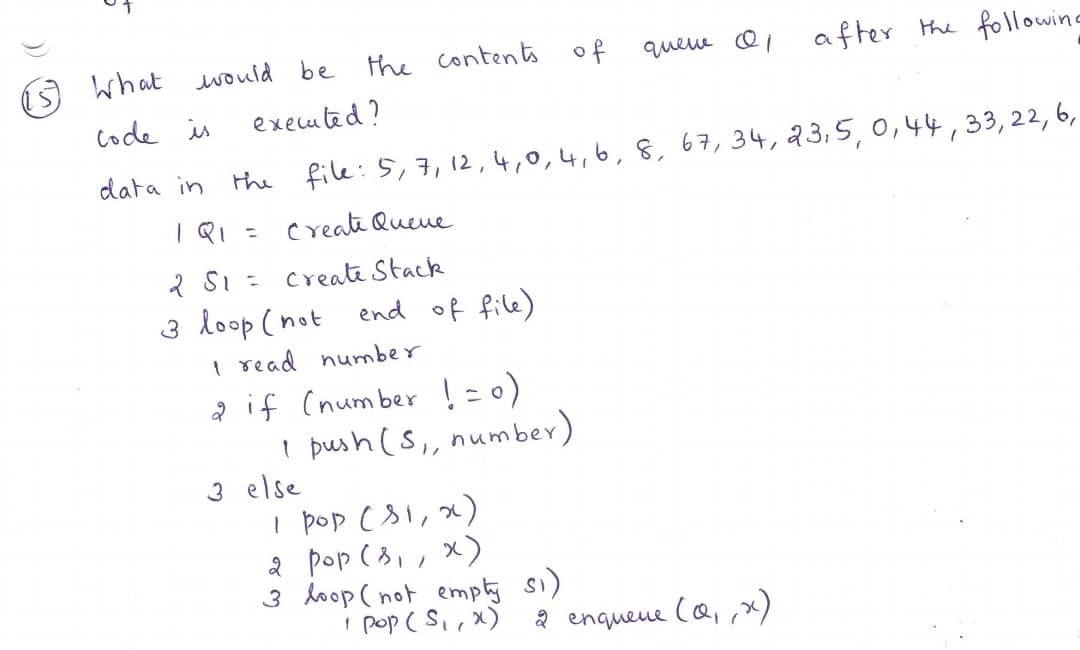 15 What would be the contents of queue Q1 after the following
code is executed?
data in the file: 5, 7, 12, 4, 0, 4, 6, 8, 67, 34, 23, 5, 0, 44, 33, 22, 6,
1 Q1 = create Queue
2 S1 = create Stack
3 loop (not end of file)
1 read number
2 if (number != 0)
1 push (S1, number)
3 else
1 pop (S1, x)
2 pop (S1, x)
3 loop (not empty S1)
1 pop (S1, x) 2 enqueue (Q1, x)